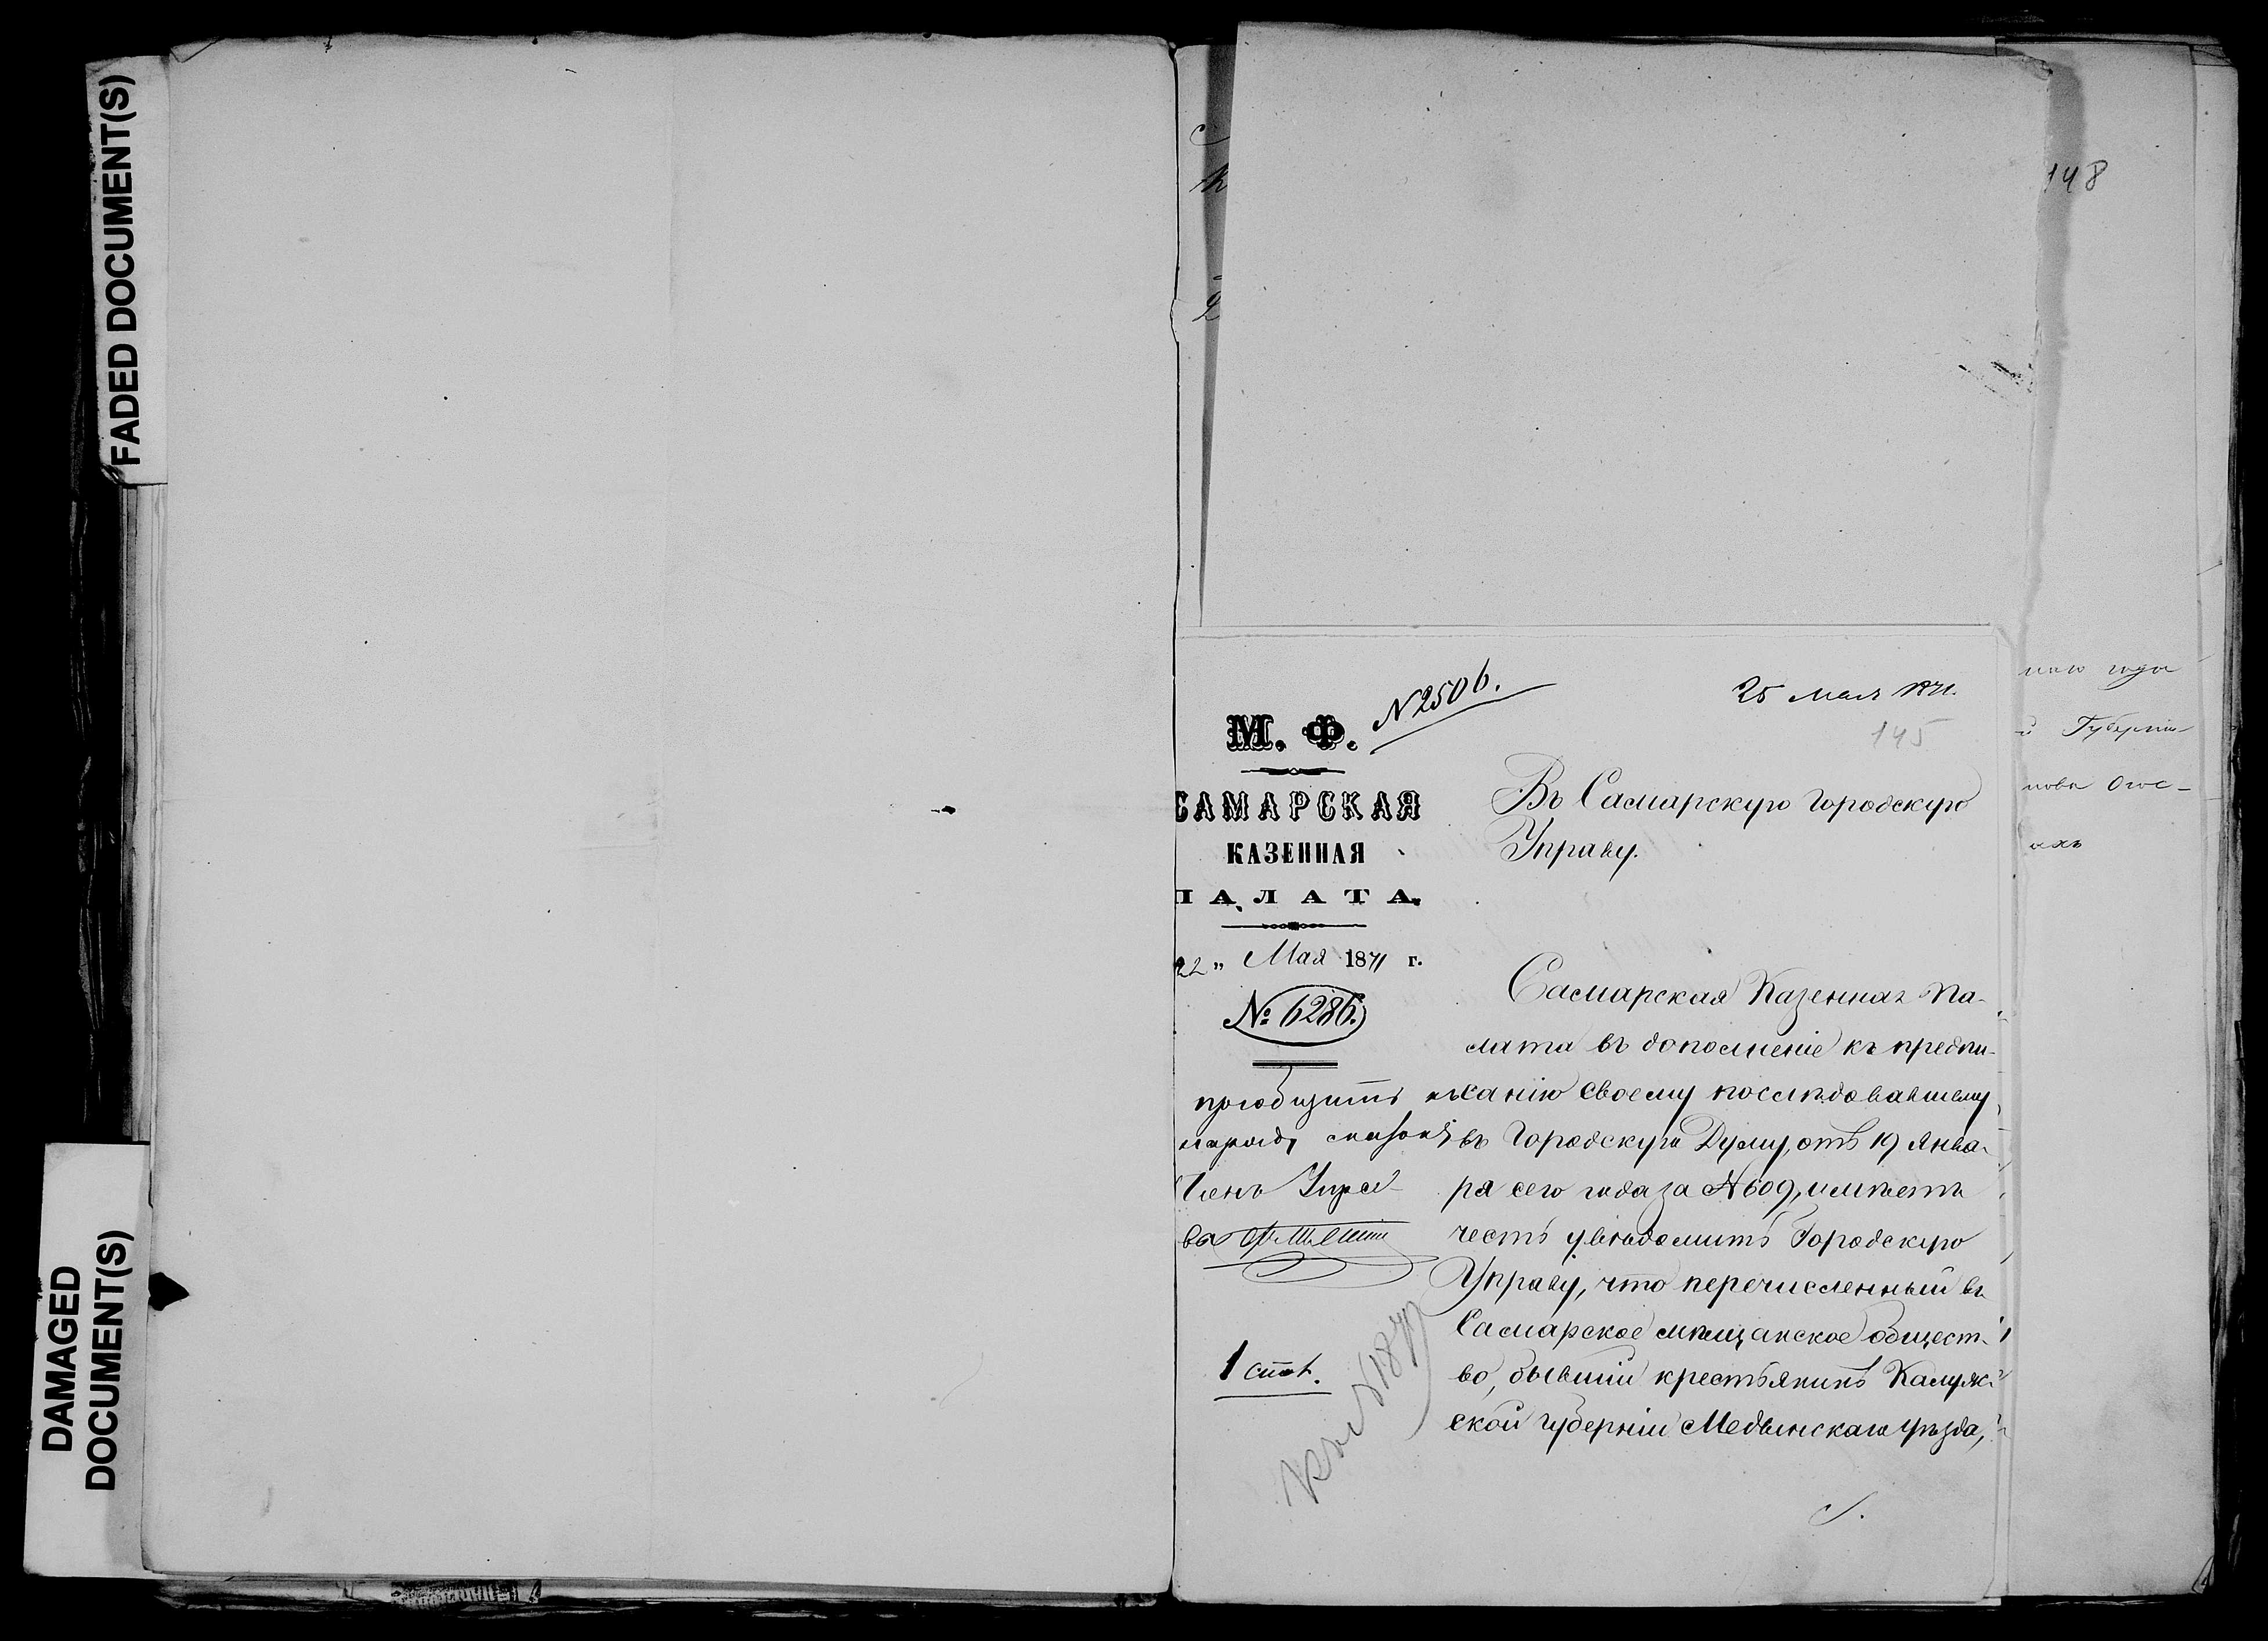 FADED DOCUMENT(S)
DAMAGED
DOCUMENT(S)
148
N 2506.
25 мая 1871.
145
М. Ф.
САМАРСКАЯ
КАЗЕННАЯ
ПАЛАТА.
22 „ Мая 1871 г.
№ 6286.
Въ Самарскую Городскую
Управу.
Самарская Казенная Па-
лата въ дополненіе къ предпи-
санію своему послѣдовавшему
въ Городскую Думу, отъ 19 Янва-
ря сего года за № 609, имѣетъ
честь увѣдомить Городскую
Управу, что перечисленный въ
Самарское мѣщанское общест-
во, бывшій крестьянинъ Калуж-
ской губерніи Медынскаго уѣзда,
пріобщить къ
Членъ Упра
1 стол.
года
Губерніи